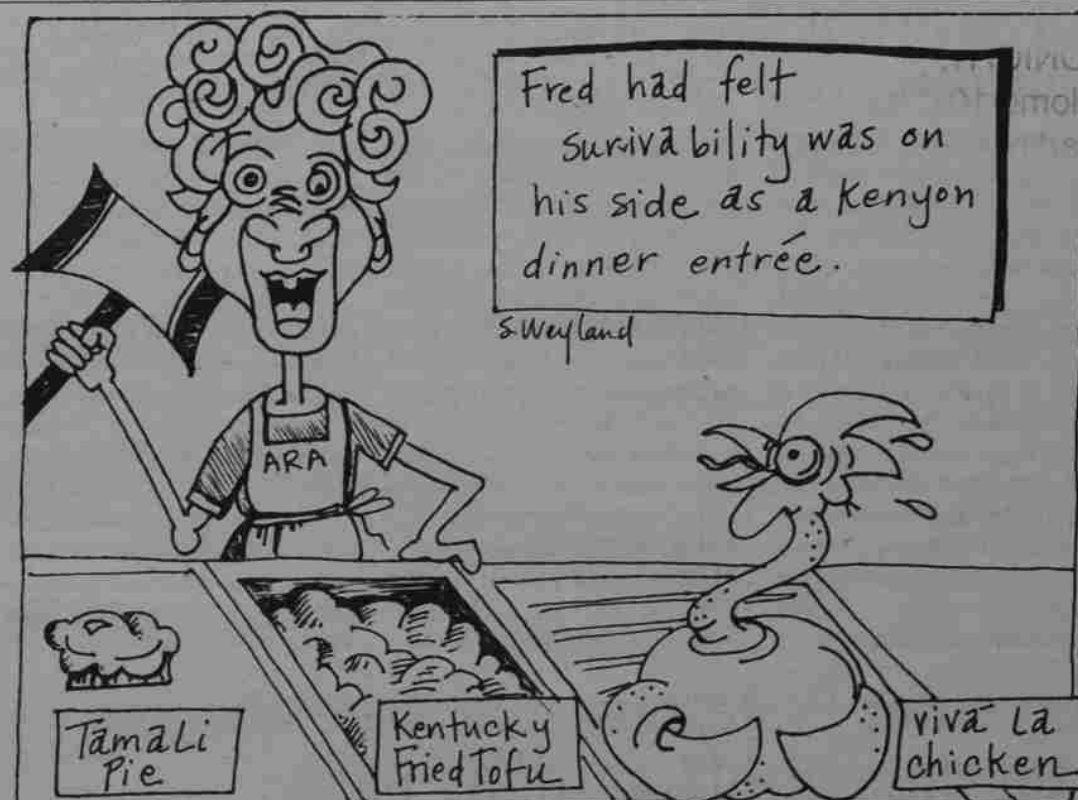 Fred had felt
survivability was on
his side as a Kenyon
dinner entrée.
S. Weyland
ARA
Tamali
Pie
Kentucky
Fried Tofu
viva La
chicken